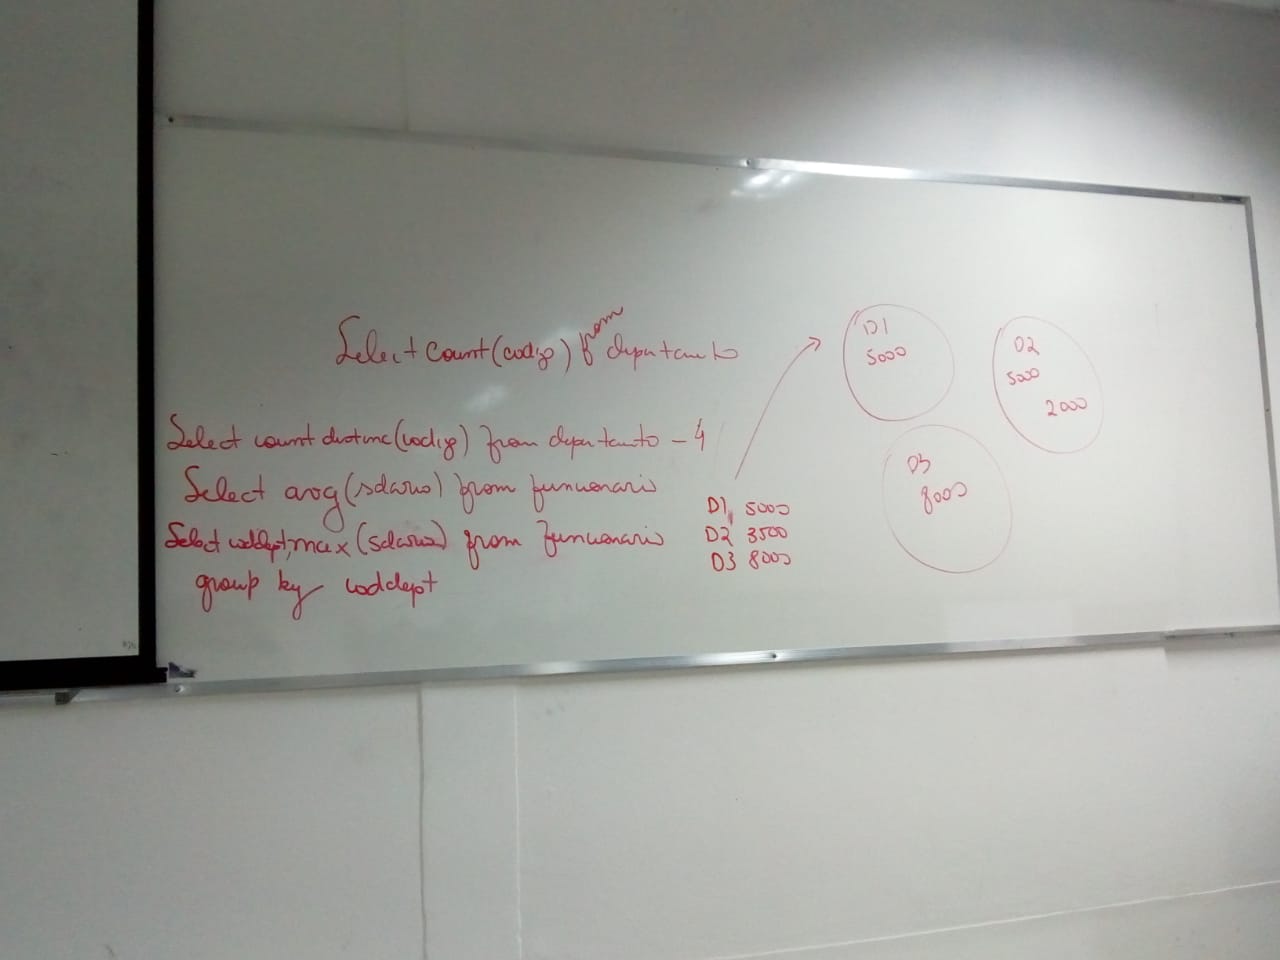 Select count(codigo) from departamento
Select count distinc(codigo) from departamento - 4
Select avg(salario) from funcionario
Select coddept, max(salario) from funcionario
group by coddept
D1, 5000
D2 3500
D3 8000
D1
5000
D2
5000
2000
D3
8000